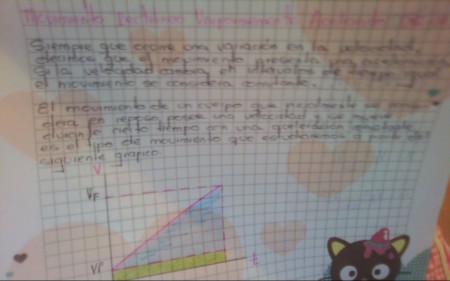 Movimiento Rectilíneo Uniformemente Acelerado
Siempre que ocurre una variación en la velocidad,
decimos que el movimiento presenta una
Si la velocidad cambia en intervalos de tiempo igual
el movimiento se considera constante.
El movimiento de un cuerpo que inicialmente se
en reposo posee una velocidad y se mueve
durante cierto tiempo con una aceleración constante
es el tipo de movimiento que estudiaremos a partir del
siguiente gráfico
V
VF
Vi
t